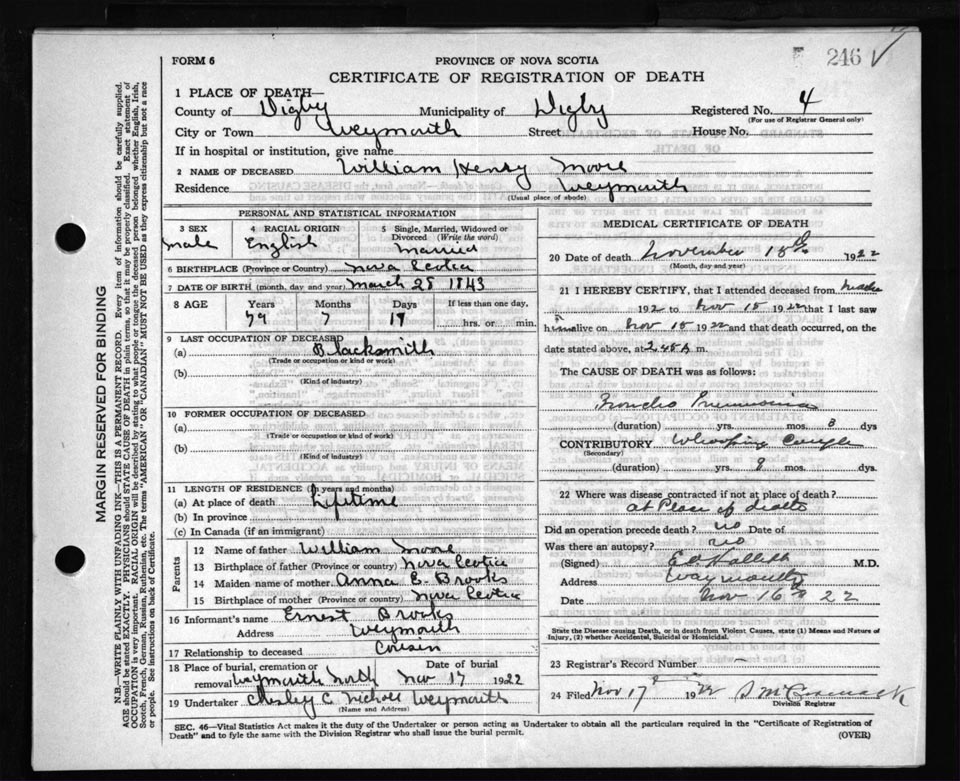 246
FORM 6
PROVINCE OF NOVA SCOTIA
CERTIFICATE OF REGISTRATION OF DEATH
1 PLACE OF DEATH—
County of Digby Municipality of Digby Registered No. 4
(For use of Registrar General only)
City or Town Weymouth Street House No.
If in hospital or institution, give name
2 NAME OF DECEASED William Henry Moore
Residence Weymouth
(Usual place of abode)
PERSONAL AND STATISTICAL INFORMATION
3 SEX male
4 RACIAL ORIGIN English
5 Single, Married, Widowed or Divorced (Write the word) Married
6 BIRTHPLACE (Province or Country) Nova Scotia
7 DATE OF BIRTH (month, day and year) March 28 1843
8 AGE Years Months Days If less than one day,
79 7 hrs. or min.
9 LAST OCCUPATION OF DECEASED
(a) Blacksmith
(Trade or occupation or kind or work)
(b)
(Kind of industry)
10 FORMER OCCUPATION OF DECEASED
(a)
(Trade or occupation or kind of work)
(b)
(Kind of industry)
11 LENGTH OF RESIDENCE (In years and months)
(a) At place of death Lifetime
(b) In province
(c) In Canada (if an immigrant)
Parents
12 Name of father William Moore
13 Birthplace of father (Province or country) Nova Scotia
14 Maiden name of mother Anna E. Brooks
15 Birthplace of mother (Province or country) Nova Scotia
16 Informant's name Ernest Brooks
Address Weymouth
17 Relationship to deceased Cousin
18 Place of burial, cremation or removal Weymouth North Date of burial Nov 17 1922
19 Undertaker C. Nichols Weymouth
(Name and Address)
MEDICAL CERTIFICATE OF DEATH
20 Date of death November 15th 1922
(Month, day and year)
21 I HEREBY CERTIFY, that I attended deceased from
192 to Nov 15 1922 that I last saw
him alive on Nov 15 1922 and that death occurred, on
date stated above, at 2.45 A m.
The CAUSE OF DEATH was as follows:
Broncho Pneumonia
(duration) yrs. mos. 3 dys
CONTRIBUTORY Whooping Cough
(Secondary)
(duration) yrs. mos. dys.
22 Where was disease contracted if not at place of death?
at Place of death
Did an operation precede death? no Date of
Was there an autopsy? no
(Signed) M.D.
Address Weymouth
Date Nov 16th 22
State the Disease causing Death, or in death from Violent Causes, state (1) Means and Nature of
Injury, (2) whether Accidental, Suicidal or Homicidal.
23 Registrar's Record Number –
24 Filed Nov 17th 1922
Division Registrar
SEC. 46—Vital Statistics Act makes it the duty of the Undertaker or person acting as Undertaker to obtain all the particulars required in the "Certificate of Registration of
Death" and to fyle the same with the Division Registrar who shall issue the burial permit.
(OVER)
MARGIN RESERVED FOR BINDING
N.B.—WRITE PLAINLY WITH UNFADING INK—THIS IS A PERMANENT RECORD. Every item of information should be carefully supplied.
AGE should be stated EXACTLY. PHYSICIANS should STATE CAUSE OF DEATH in plain terms, so that it may be properly classified. Exact statement of
OCCUPATION is very important. RACIAL ORIGIN will be described by stating to what people or tongue the deceased person belonged whether English, Irish,
Scotch, French, German, Russian, Ruthenian, etc. The terms "AMERICAN" OR "CANADIAN" MUST NOT BE USED as they express citizenship but not a race
or people. See instructions on back of Certificate.